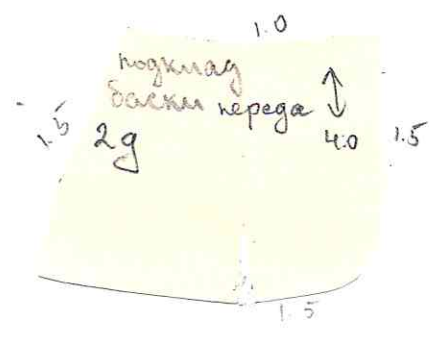 1.0
подклад
баски переда
1.5 2д 4.0 1.5
1.5